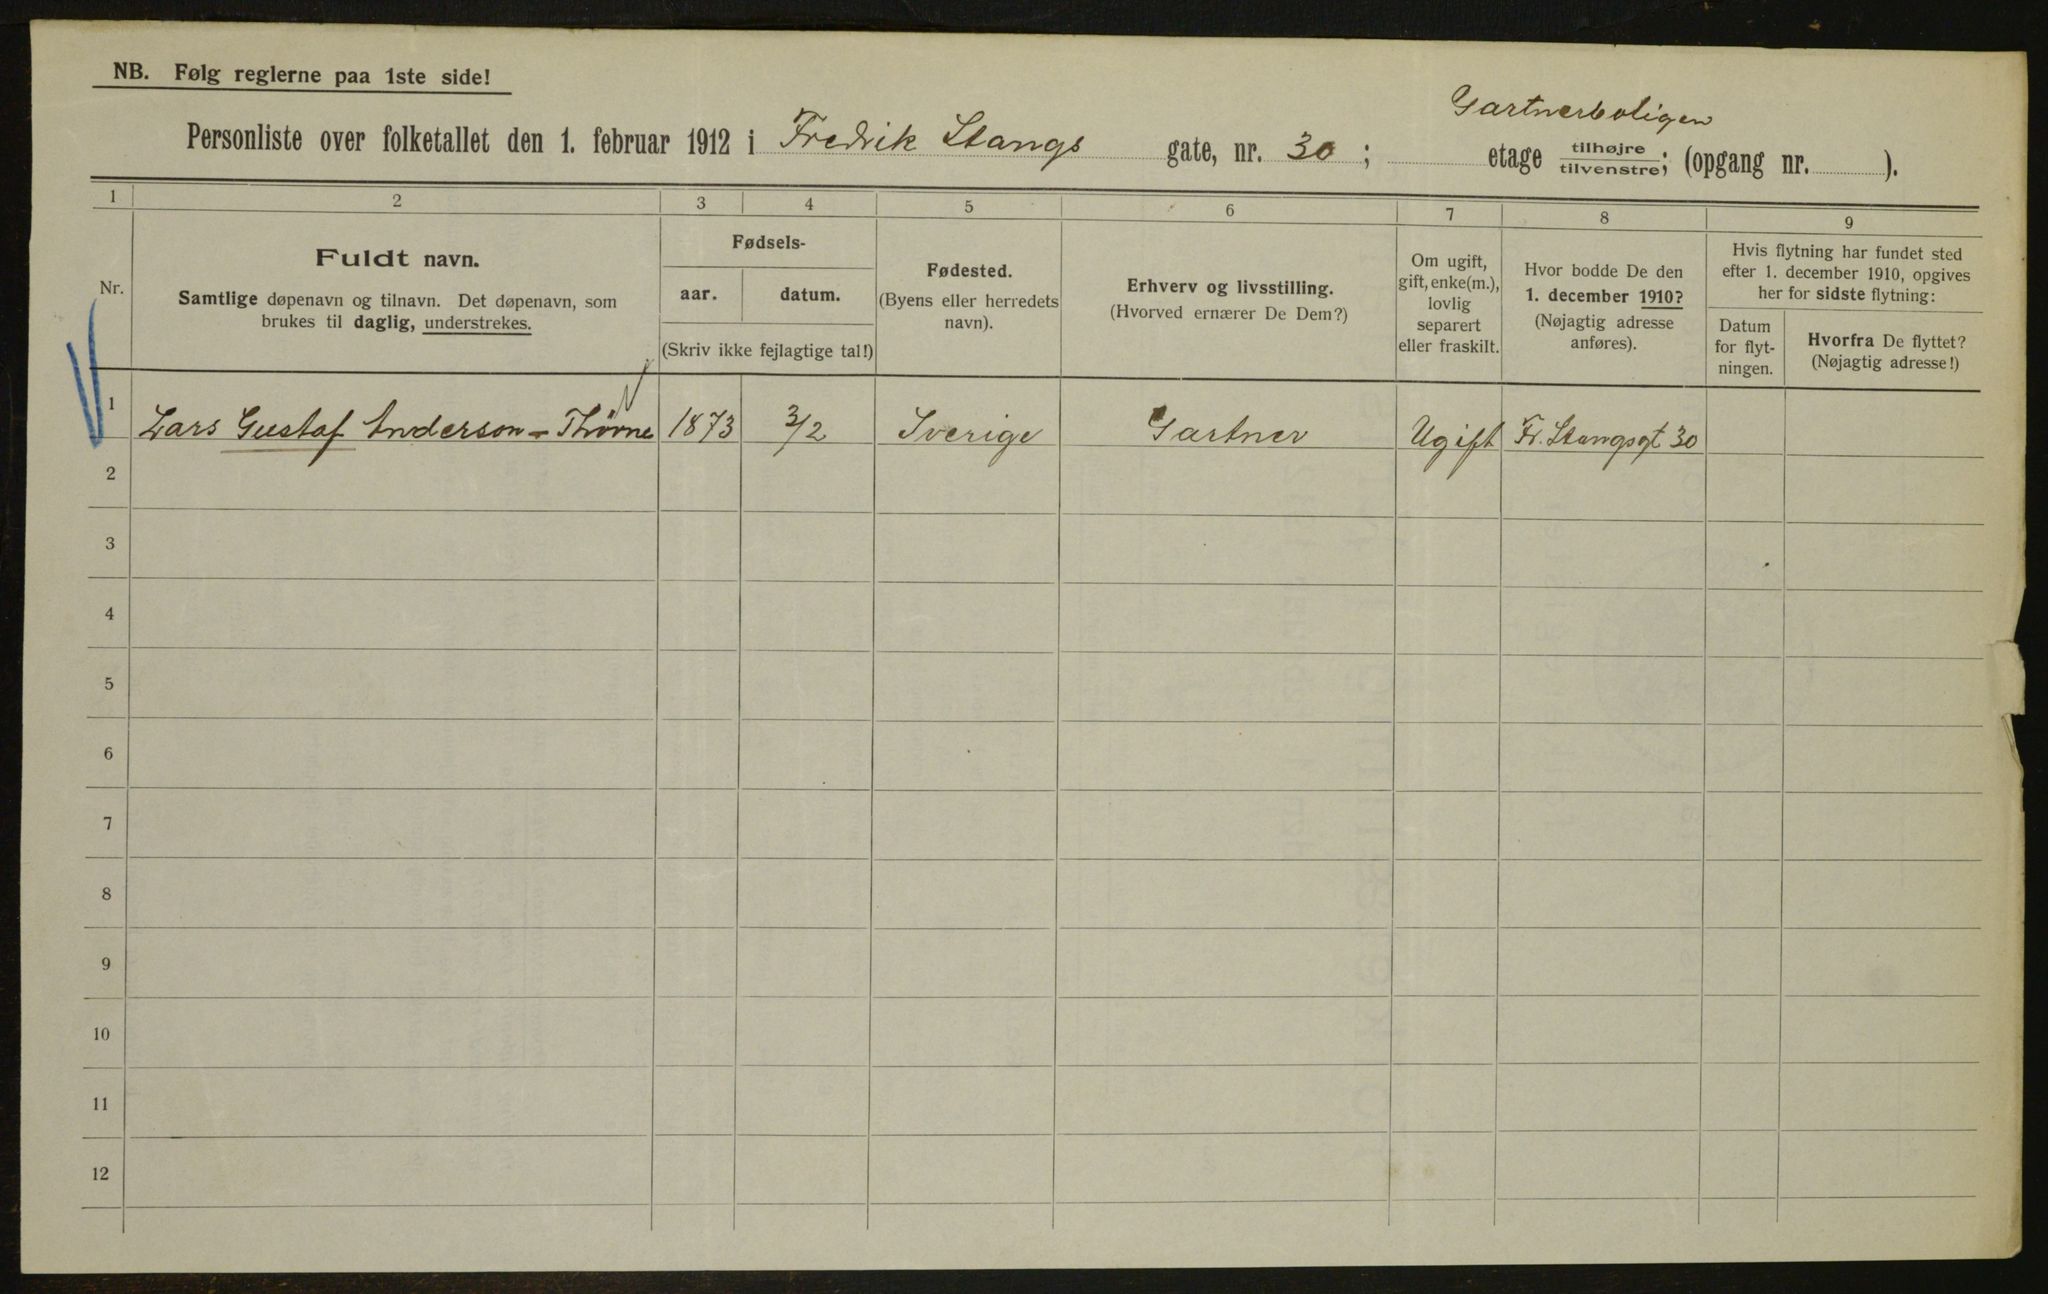 NB. Følg reglerne paa 1ste side!
Gartnerboligen
Personliste over folketallet den 1. februar 1912 i Fredrik Stangs gate, nr. 30; etage tilhøjre/tilvenstre; (opgang nr. ).
1 2 3 4 5 6 7 8 9
Nr.
Fuldt navn.
Samtlige døpenavn og tilnavn. Det døpenavn, som
brukes til daglig, understrekes.
Fødsels-
aar. datum.
(Skriv ikke fejlagtige tal!)
Fødested.
(Byens eller herredets
navn).
Erhverv og livsstilling.
(Hvorved ernærer De Dem?)
Om ugift,
gift, enke(m.),
lovlig
separert
eller fraskilt.
Hvor bodde De den
1. december 1910?
(Nøjagtig adresse
anføres).
Hvis flytning har fundet sted
efter 1. december 1910, opgives
her for sidste flytning:
Datum
for flyt-
ningen.
Hvorfra De flyttet?
(Nøjagtig adresse!)
1 Lars Gustaf Anderson - Thörne 1873 3/2 Sverige Gartner Ugift Fr. Stangsgt 30
2
3
4
5
6
7
8
9
10
11
12